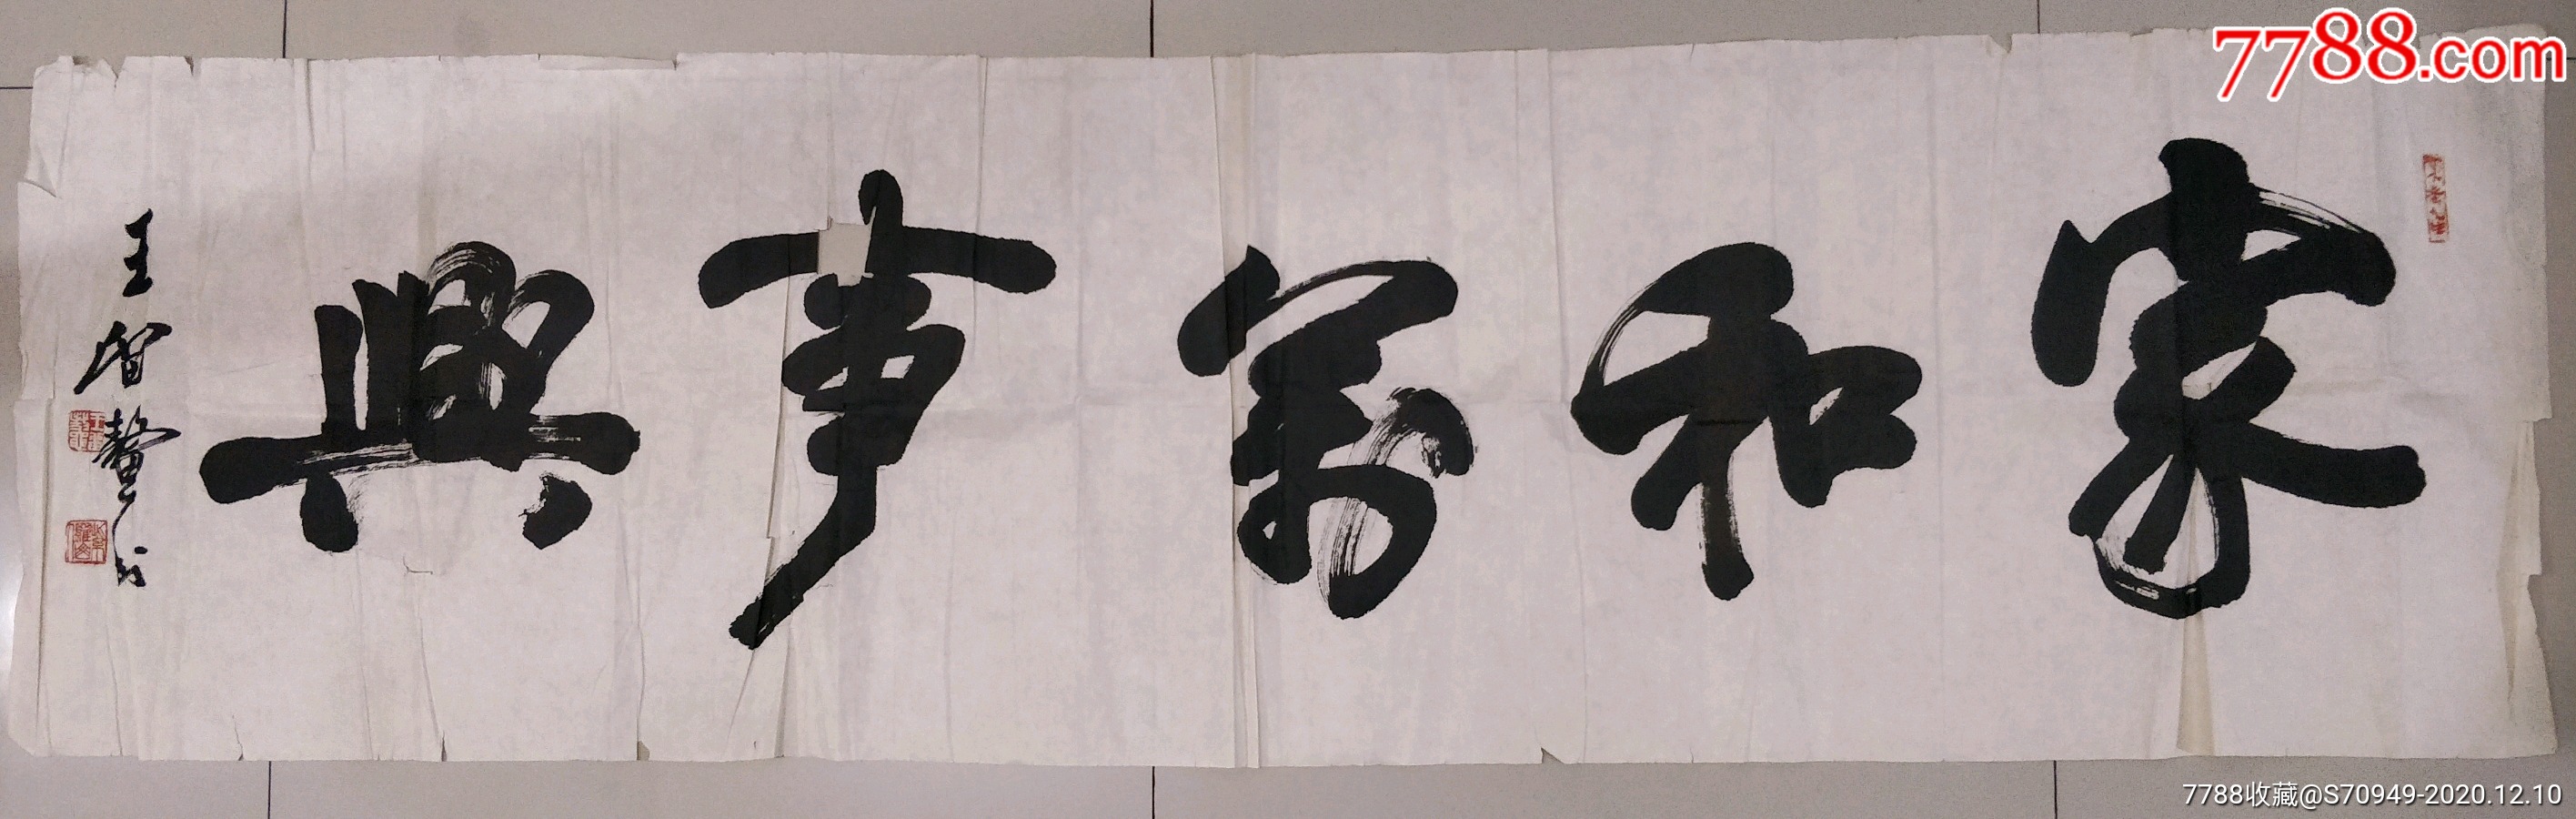 家和萬事興
王智鳌书
7788.com
7788收藏@S70949-2020.12.10